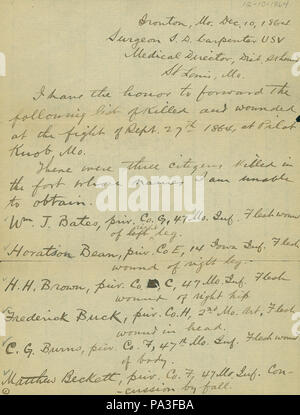 12-10-1864
Ironton, Mo. Dec, 10, 1864
Surgeon S. D. Carpenter USV
Medical Director, Dist. St Louis
St Louis, Mo.
I have the honor to forward the
following list of killed and wounded
at the fight of Sept. 27th 1864, at Pilot
Knob, Mo.
There were three citizens killed in
the fort whose names I am unable
to obtain.
Wm. J. Bates, priv. Co. G, 47 Mo. Inf. Flesh wound
of left leg.
Horatson Bean, priv. Co E, 14 Iowa Inf. Flesh
wound of right leg.
H. H. Brown, priv. Co C, 47 Mo. Inf. Flesh
wound of right hip
Frederick Buck, priv. Co. H, 2nd Mo. Art, Flesh
wound in head.
C. G. Burns, priv. Co. F, 47th Mo. Inf. Flesh wound
of body.
Matthew Beckett, priv. Co F, 47 Mo. Inf. Con-
cussion by fall.
a
alamy
www.alamy.com
PA3FBA